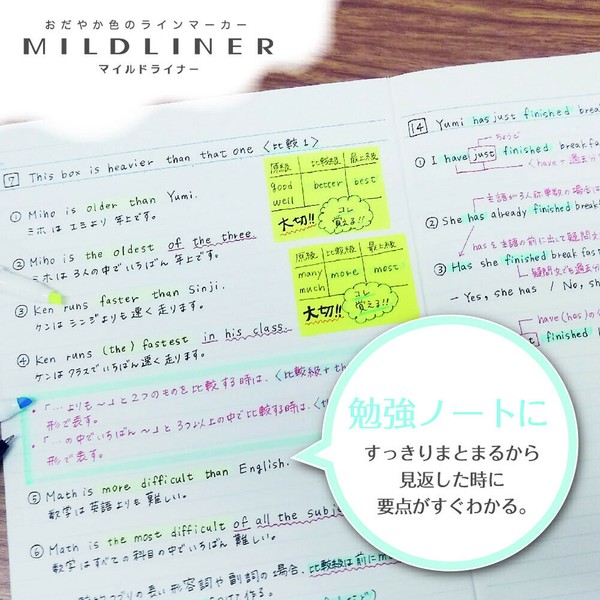 おだやか色のラインマーカー
MILDLINER
マイルドライナー
7 This box is heavier than that one 〈比較1〉
① Miho is older than Yumi.
ミホは ユミより 年上です。
② Miho is the oldest of the three.
ミホは 3人の中でいちばん 年上です。
③ Ken runs faster than Sinji.
ケンは シンジよりも 速く 走ります。
④ Ken runs (the) fastest in his class.
ケンは クラスでいちばん 速く 走ります。
・「…よりも〜」と2つのものを比較する時は、〈比較級+th
形で表す。
・「…の中でいちばん〜」と3つ以上の中で比較する時は、〈th
形で表す。
⑤ Math is more difficult than English.
数学は 英語よりも 難しい。
⑥ Math is the most difficult of all the subje
数学は すべての 科目の 中で いちばん 難しい。
つづりの長い 形容詞や 副詞の 場合、比較級は前にm
つけて作る。
原級 比較級 最上級
good better best
well
大切!! コレ覚える!!
原級 比較級 最上級
many more most
much
大切!! コレ覚える!!
14 Yumi has just finished brea
ちょうど
① I have just finished breakfa
〈have+過去分
主語が3人称単数の場合は
② She has already finished break
hasを主語の前に出して疑問文
③ Has she finished break
疑問文でも過去
- Yes, she has / No, sh
have(has)の
finished
勉強ノートに
すっきりまとまるから
見返した時に
要点がすぐわかる。